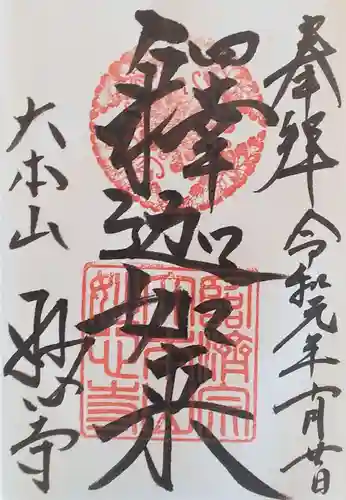 奉拝
令和元年 月廿日
釋迦如来
大本山
妙心寺
臨済宗
大本山
妙心寺